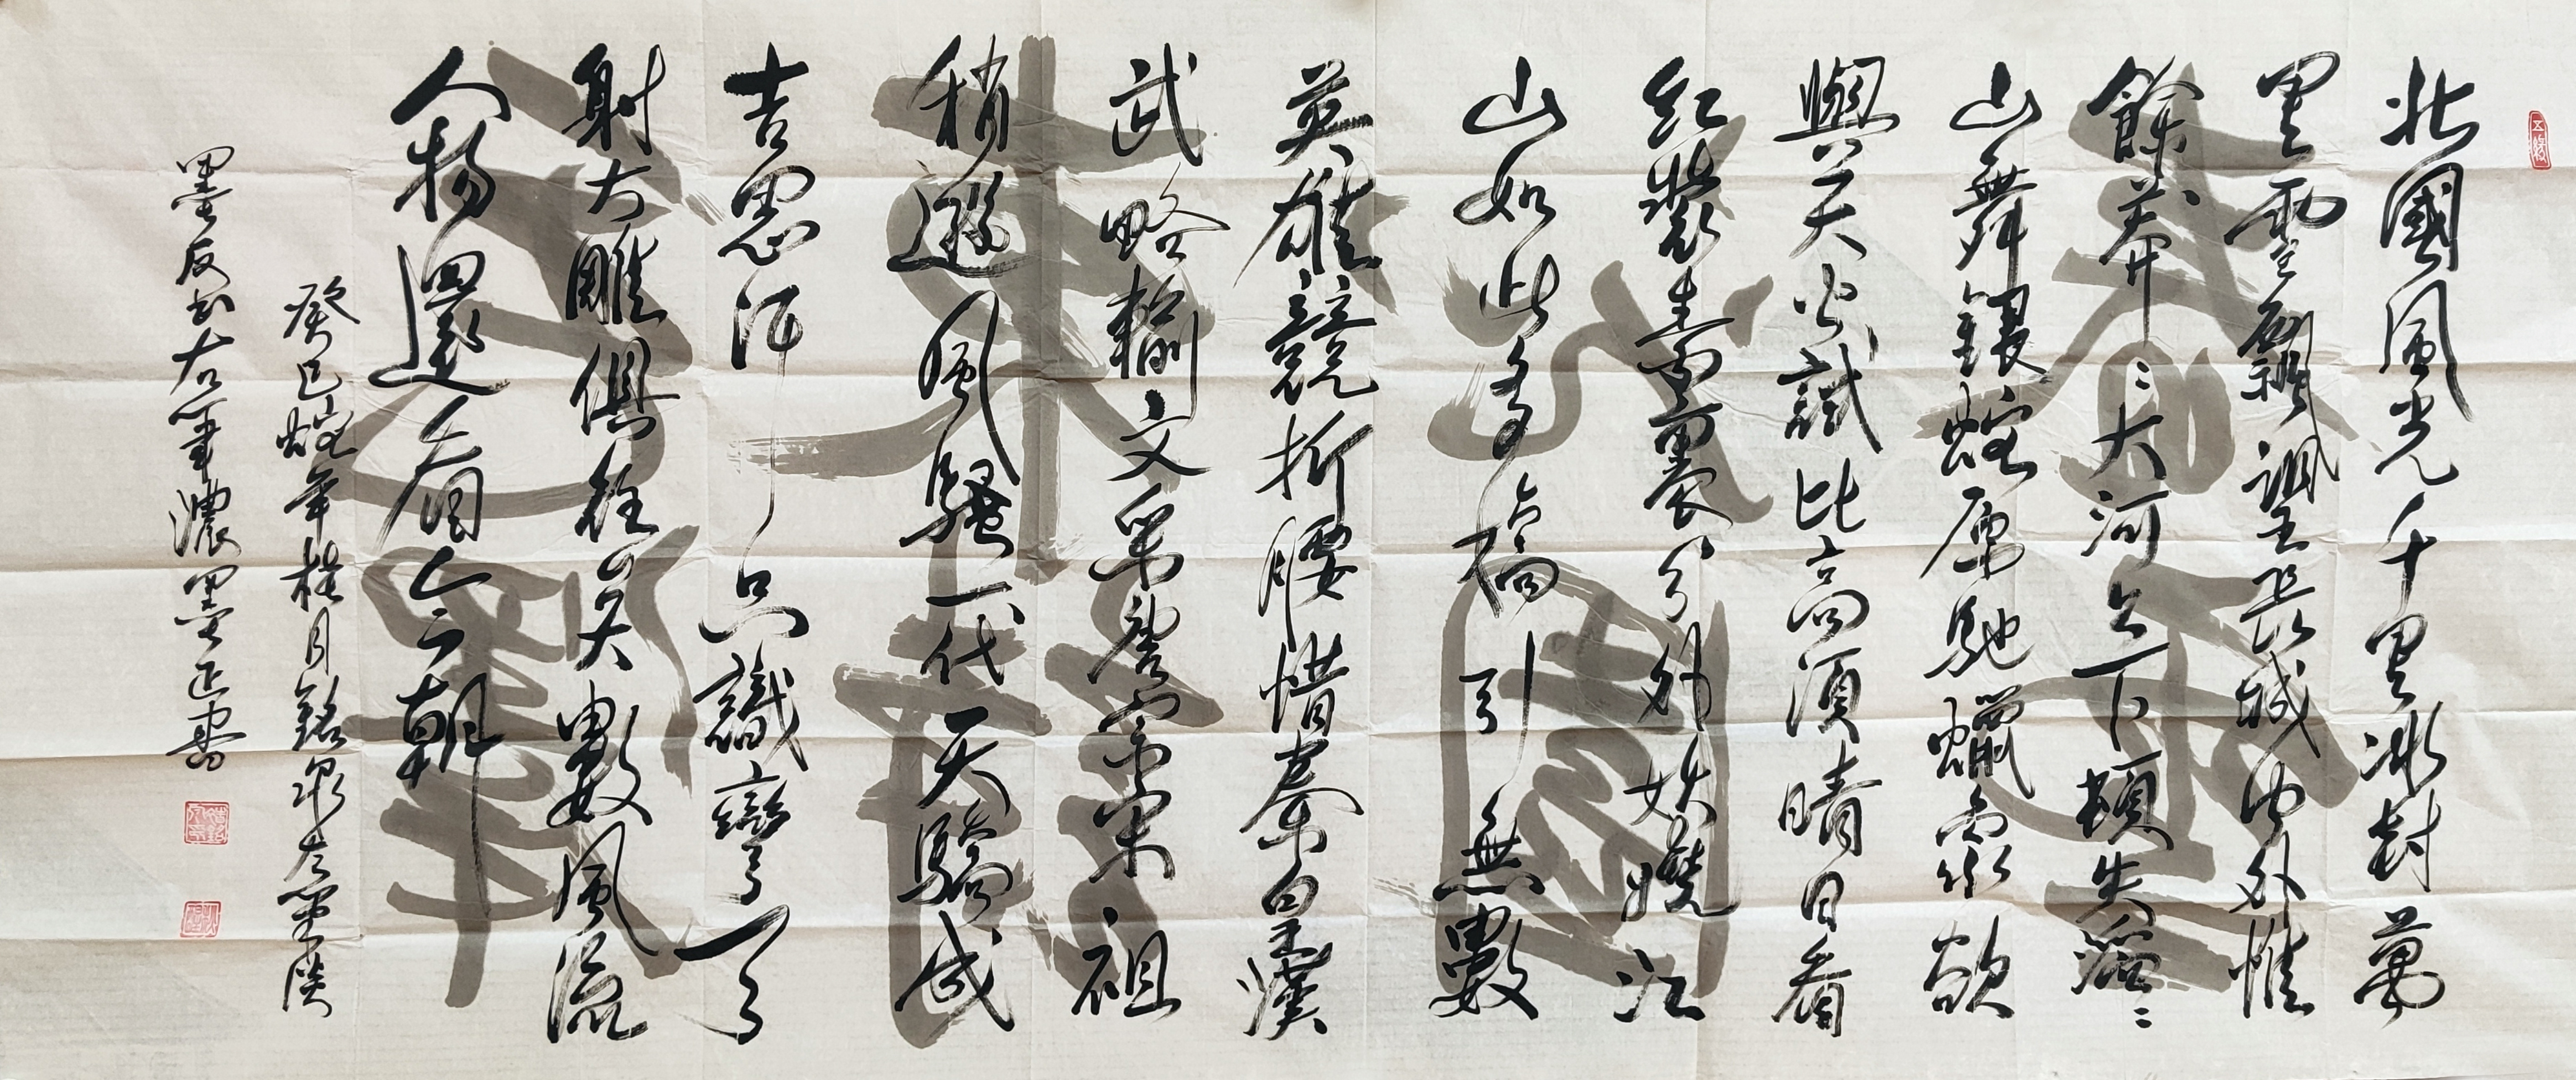 北國風光千里冰封萬
里雪飄望長城內外惟
餘莽〻大河上下頓失滔〻
山舞銀蛇原馳蠟象欲
與天公試比高須晴日看
紅裝素裹分外妖嬈江
山如此多嬌引無數
英雄競折腰惜秦皇漢
武略輸文采唐宗宋祖
稍遜風騷一代天驕成
吉思汗只識彎弓
射大雕俱往矣數風流
人物還看今朝
癸巳蛇年桂月銘泉左筆淡
墨反書右筆濃墨正書